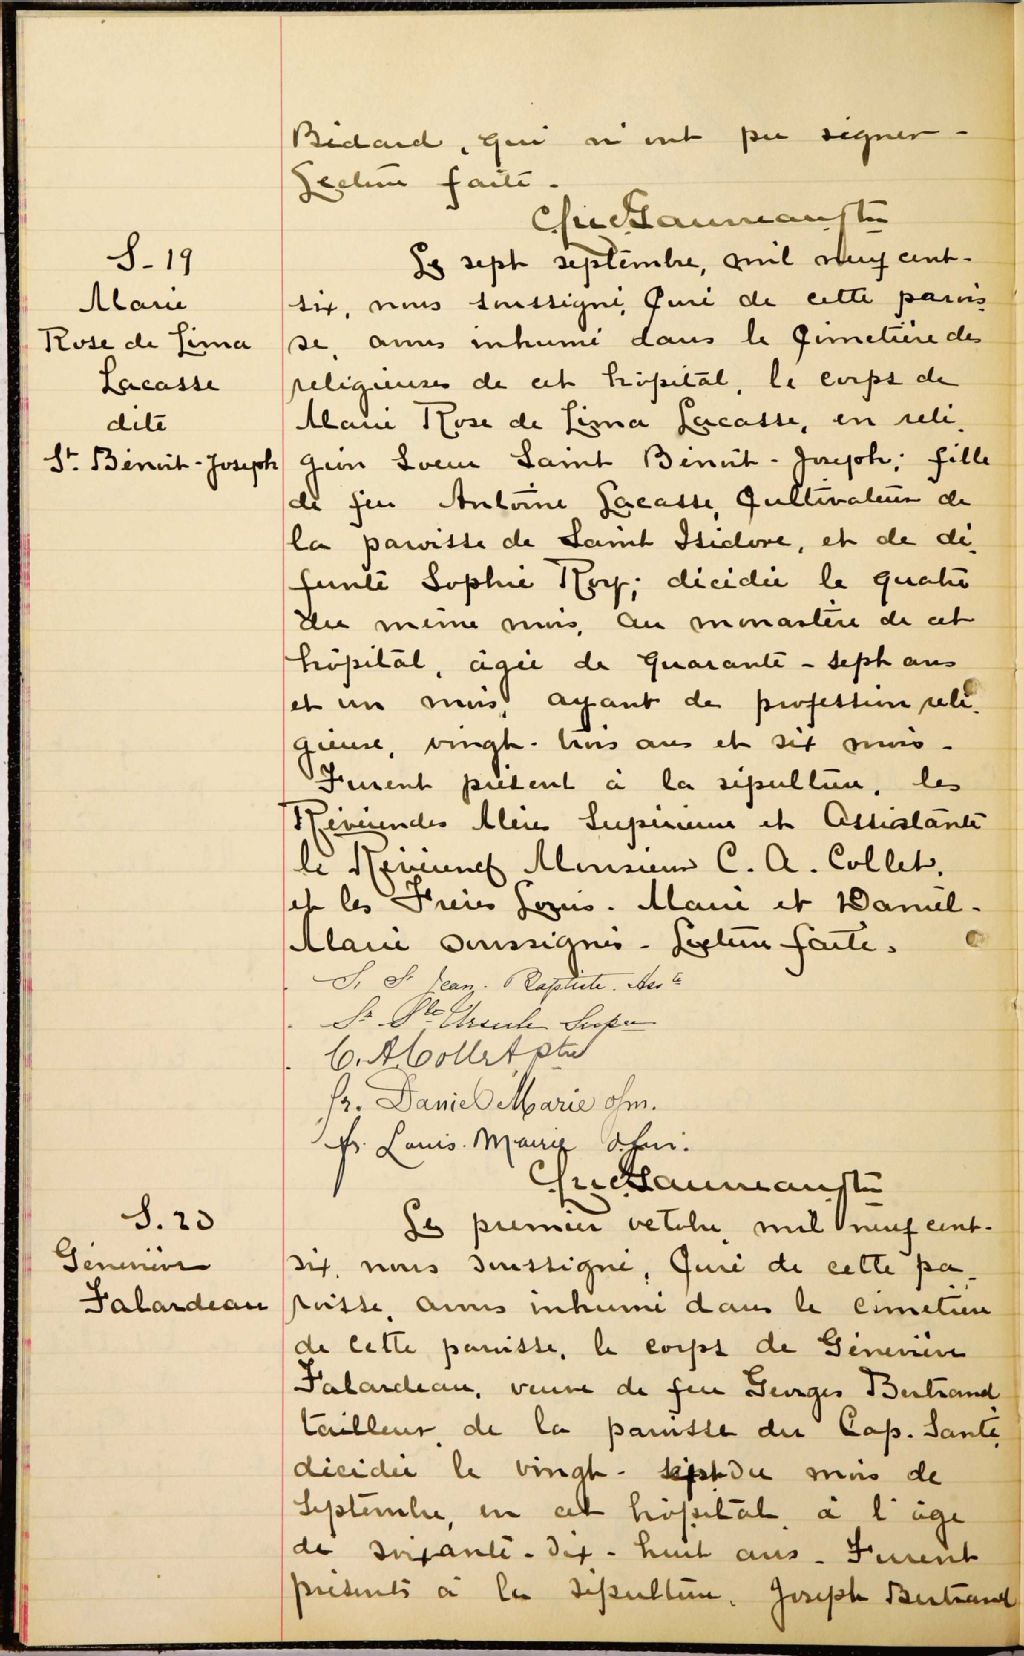 Bédard, qui n'ont pu signer -
Lecture faite.
S-19
Marie
Rose de Lima
Lacasse
dite
St. Benoit-Joseph
Le sept septembre, mil neuf cent-
six, nous soussigné, Curé de cette parois-
se, avons inhumé dans le Cimetière des
religieuses de cet hôpital, le corps de
Marie Rose de Lima Lacasse, en reli-
gion Soeur Saint Benoit-Joseph; fille
de feu Antoine Lacasse, Cultivateur de
la paroisse de Saint Isidore, et de dé-
funte Sophie Roy; décédée le quatre
du même mois, au monastère de cet
hôpital, âgée de quarante-sept ans
et un mois, ayant de profession reli-
gieuse, vingt-trois ans et six mois -
Furent présent à la sépulture, les
Révérendes Mères Supérieure et Assistante
le Révérend Monsieur C. A. Collet,
et les Frères Louis-Marie et Daniel-
Marie soussignés - Lecture faite.
S. St Jean-Baptiste. Asste
Sr. Ste Ursule Supre
C. A. Collet ptre
fr. Daniel Marie ofm.
fr. Louis-Marie o.f.m.
S. 20
Geneviève
Falardeau
Le premier octobre, mil neuf cent-
six, nous soussigné, Curé de cette pa-
roisse, avons inhumé dans le cimetière
de cette paroisse, le corps de Geneviève
Falardeau, veuve de feu Georges Bertrand
tailleur, de la paroisse du Cap-Santé,
décédée le vingt-sept du mois de
Septembre, en cet hôpital, à l'âge
de soixante-dix-huit ans - Furent
présents à la sépulture, Joseph Bertrand